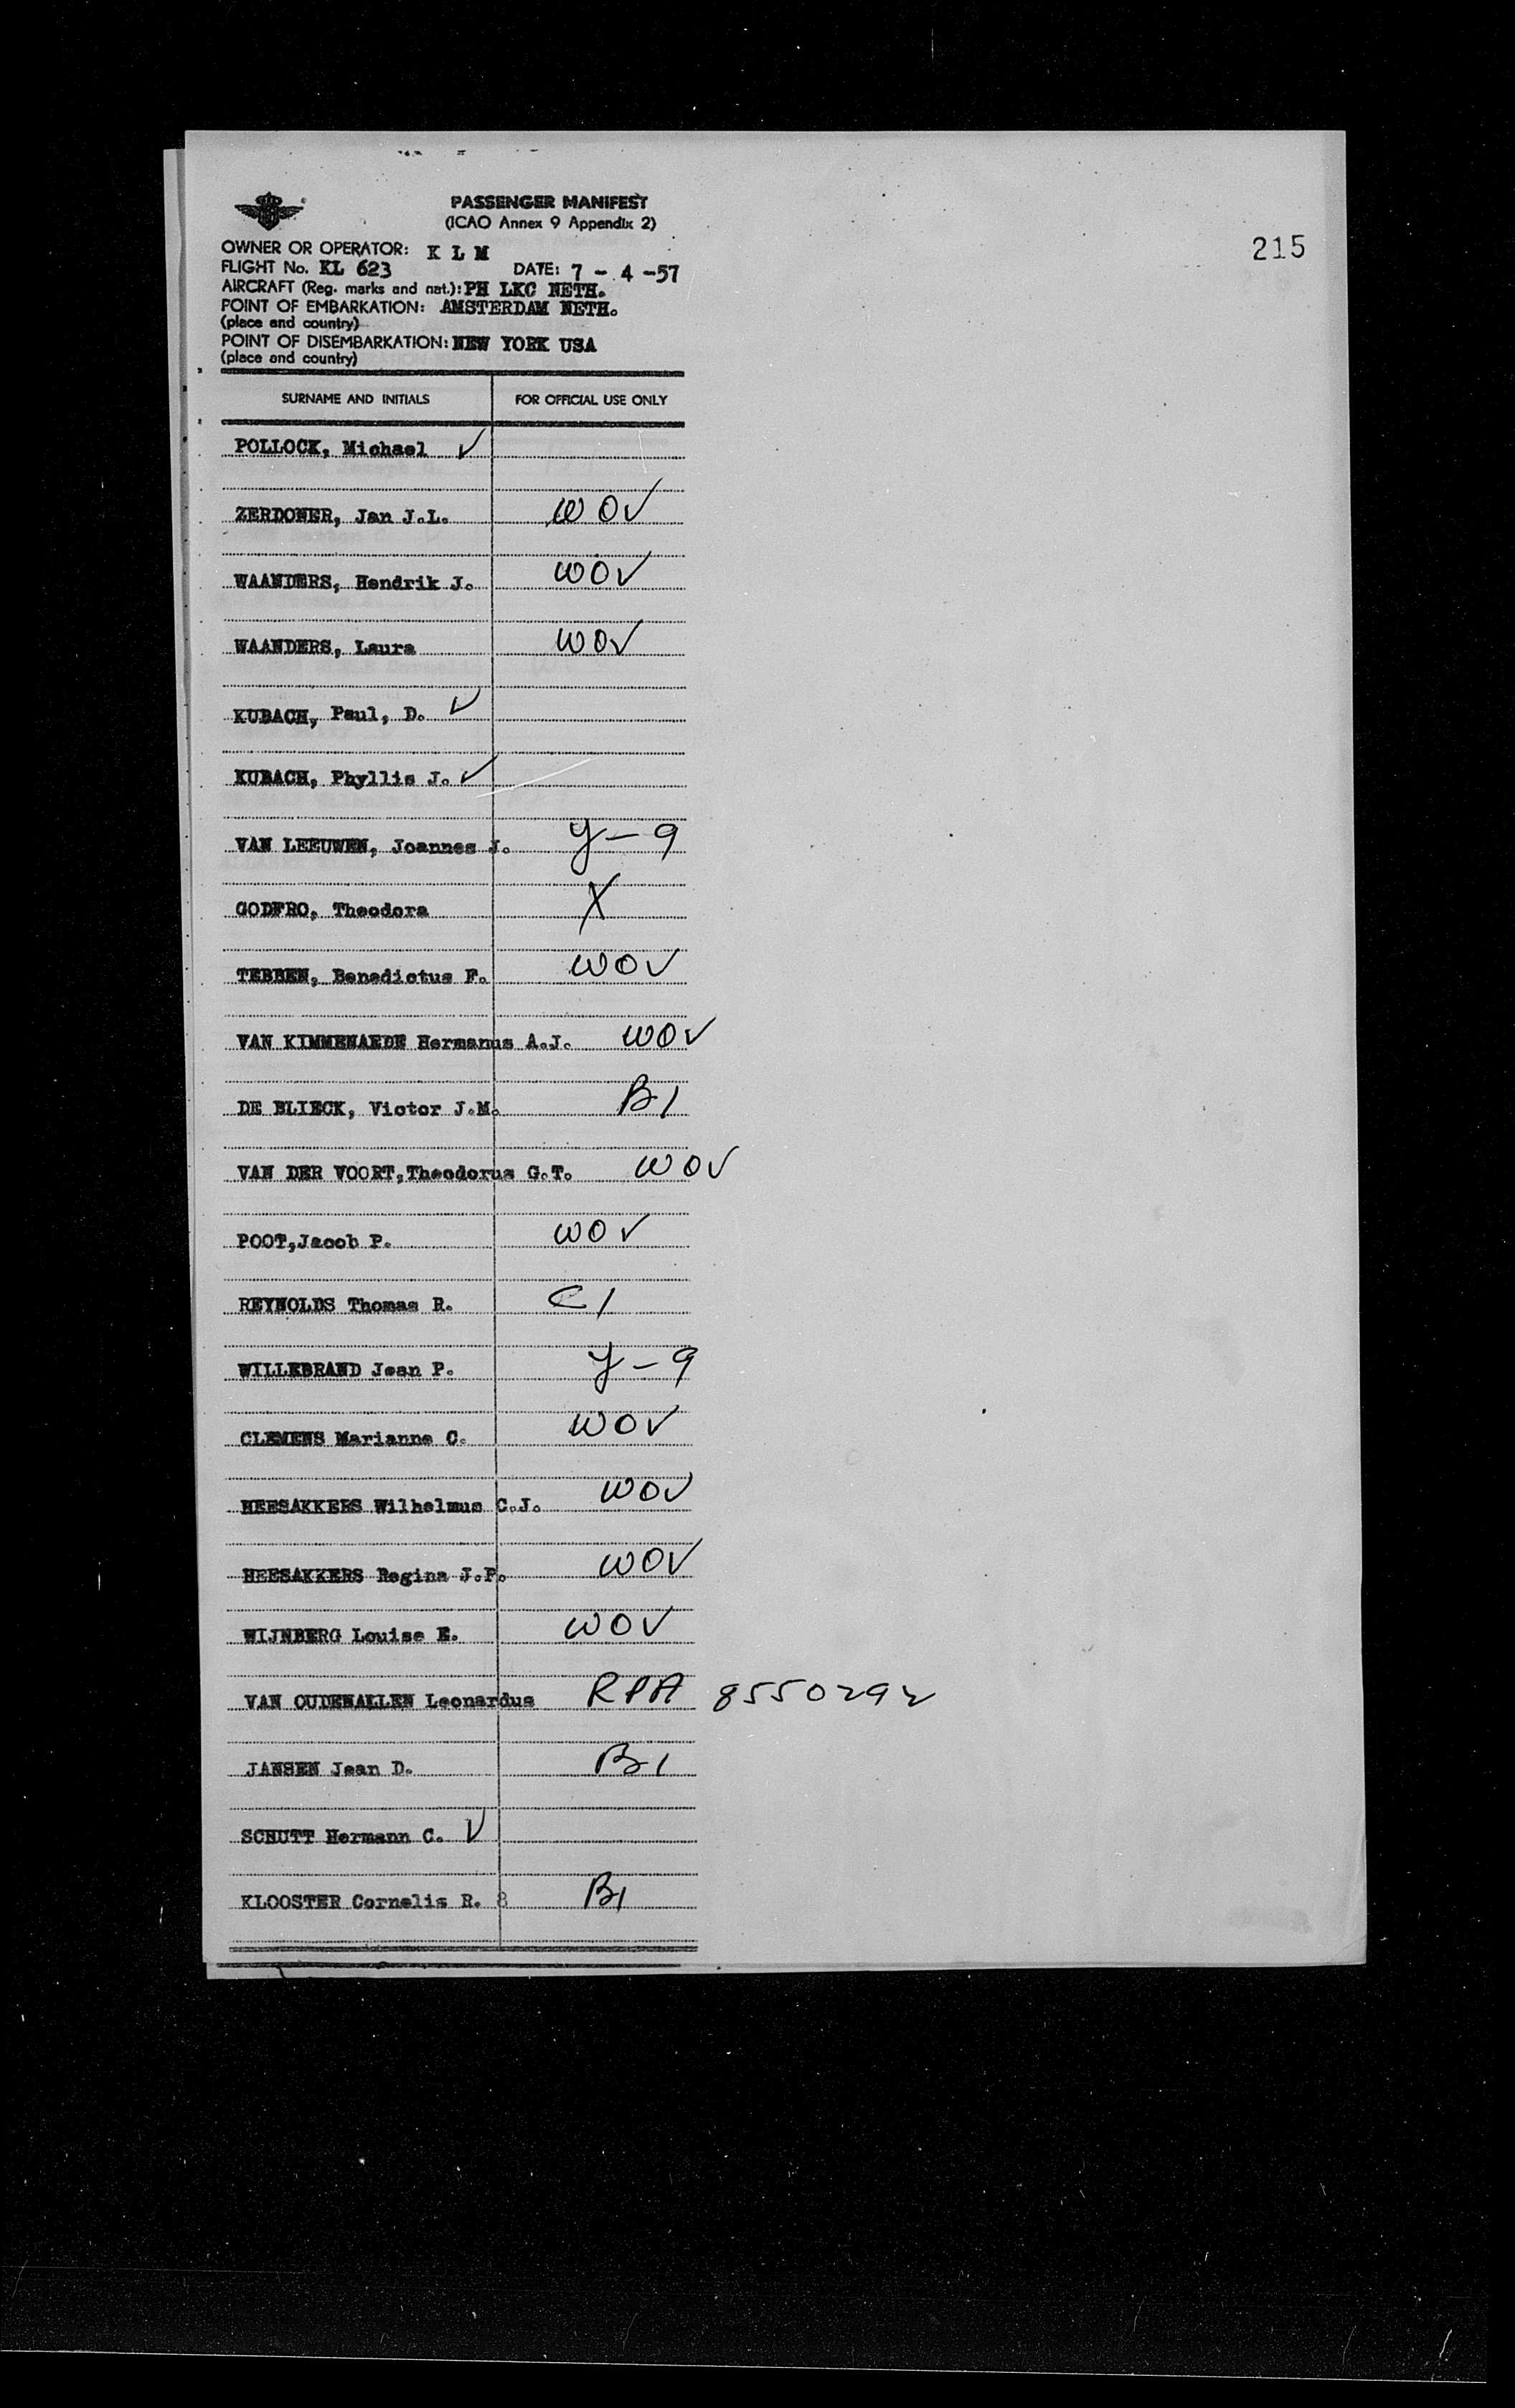 215
PASSENGER MANIFEST
(ICAO Annex 9 Appendix 2)
OWNER OR OPERATOR: K L M
FLIGHT No. KL 623 DATE: 7 - 4 -57
AIRCRAFT (Reg. marks and nat.): PH LKC NETH.
POINT OF EMBARKATION: AMSTERDAM NETH.
(place and country)
POINT OF DISEMBARKATION: NEW YORK USA
(place and country)
SURNAME AND INITIALS FOR OFFICIAL USE ONLY
POLLOCK, Michael ✓
ZERDONER, Jan J.L. WOV
WAANDERS, Hendrik J. WOV
WAANDERS, Laura WOV
KUBACH, Paul, D. ✓
KUBACH, Phyllis J. ✓
VAN LEEUWEN, Joannes J. Y-9
GODFRO, Theodora X
TEBBEN, Benedictus F. WOV
VAN KIMMENAEDE Hermanus A.J. WOV
DE BLIECK, Victor J.M. B1
VAN DER VOORT, Theodorus G.T. WOV
POOT, Jacob P. WOV
REYNOLDS Thomas R. C1
WILLEBRAND Jean P. Y-9
CLEMENS Marianne C. WOV
HEESAKKERS Wilhelmus C.J. WOV
HEESAKKERS Regina J.P. WOV
WIJNBERG Louise E. WOV
VAN OUDENALLEN Leonardus RPA 8550292
JANSEN Jean D. B1
SCHUTT Hermann C. ✓
KLOOSTER Cornelis R. 8 B1